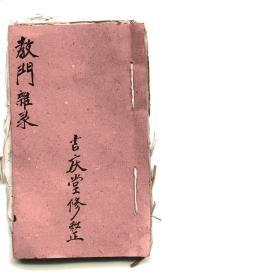 教門雜录
吉庆堂修整